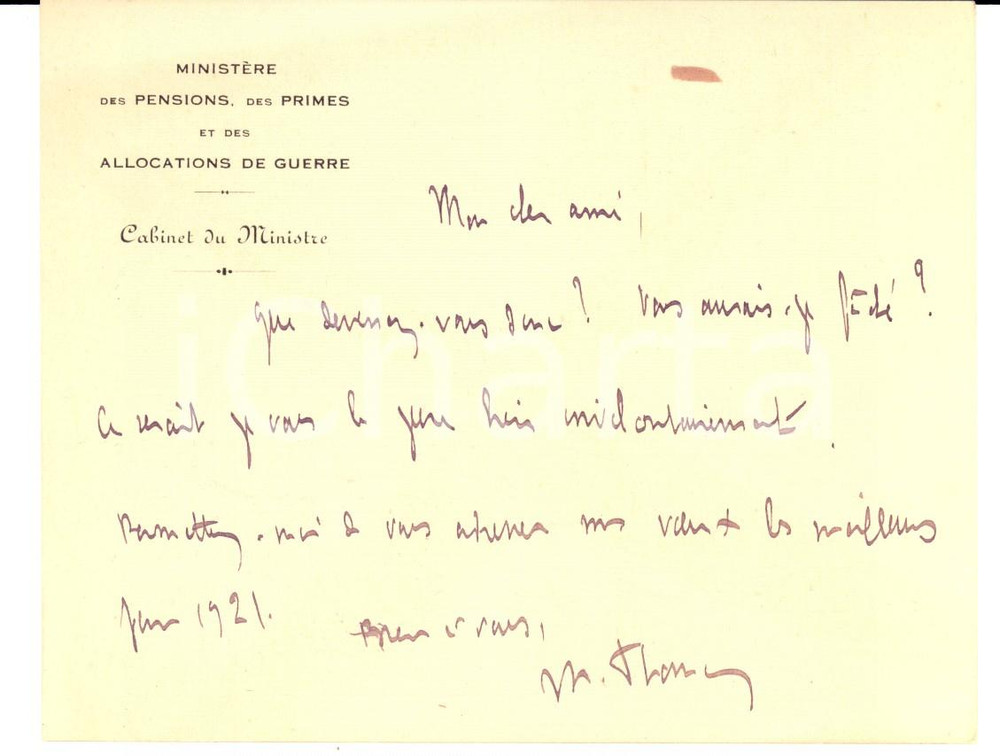 MINISTÈRE
DES PENSIONS, DES PRIMES
ET DES
ALLOCATIONS DE GUERRE
Cabinet du Ministre
Mon cher ami,
Que devenez-vous donc ? Vous aurais-je fâché ?
Ce serait je vous le jure bien involontairement.
Permettez-moi de vous adresser mes vœux les meilleurs
pour 1921.
Bien à vous,
iCharta